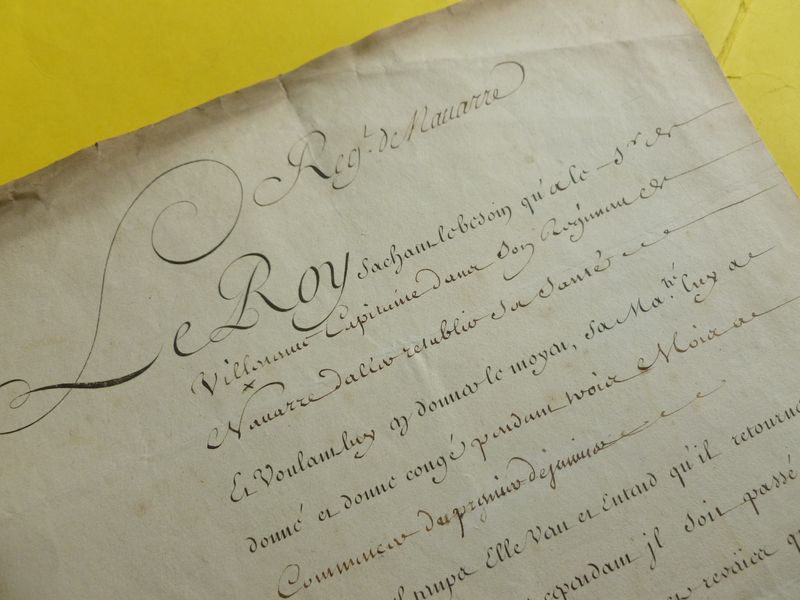 Reg.t de Nauarre
Le Roy sachant le besoin qu'a le Sr. de
Capitaine dans son Regiment de
Nauarre d'aller retablir sa santé
Et Voulant luy en donner le moyen, Sa Ma.té luy a
donné et donne congé pendant trois Mois a
Commencer du premier de januier
temps Elle Veut et Entend qu'il retourne
cependant jl soit passé
reveües